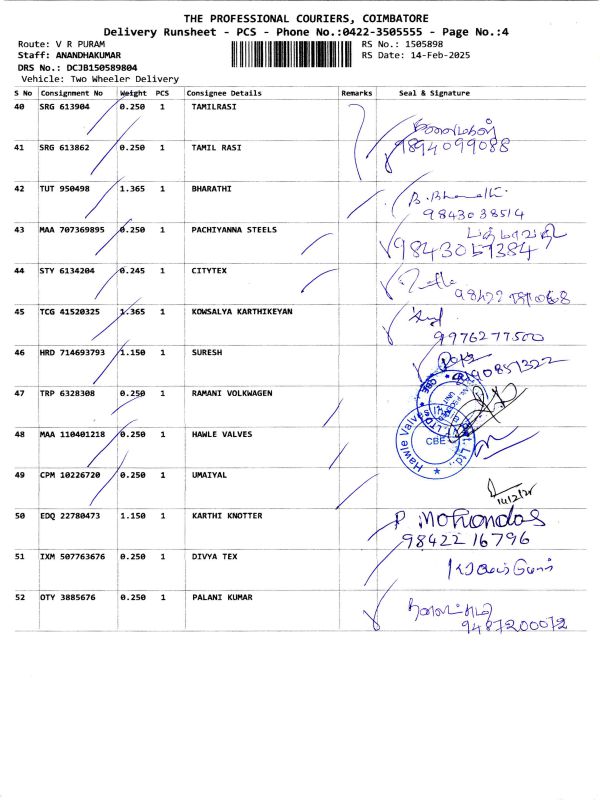 THE PROFESSIONAL COURIERS, COIMBATORE
Delivery Runsheet - PCS - Phone No.:0422-3505555 - Page No.:4
Route: V R PURAM RS No.: 1505898
Staff: ANANDHAKUMAR RS Date: 14-Feb-2025
DRS No.: DCJB150589804
Vehicle: Two Wheeler Delivery
S No Consignment No Weight PCS Consignee Details Remarks Seal & Signature
40 SRG 613904 0.250 1 TAMILRASI
9894099088
41 SRG 613862 0.250 1 TAMIL RASI
42 TUT 950498 1.365 1 BHARATHI B. Bharathi
9843038514
43 MAA 707369895 0.250 1 PACHIYANNA STEELS
9843057384
44 STY 6134204 0.245 1 CITYTEX
45 TCG 41520325 1.365 1 KOWSALYA KARTHIKEYAN
9976277500
46 HRD 714693793 1.150 1 SURESH
47 TRP 6328308 0.250 1 RAMANI VOLKWAGEN
48 MAA 110401218 0.250 1 HAWLE VALVES
Hawle Valves Pvt. Ltd.,
CBE
49 CPM 10226720 0.250 1 UMAIYAL
14/2/25
50 EDQ 22780473 1.150 1 KARTHI KNOTTER P Mohandas
9842216796
51 IXM 507763676 0.250 1 DIVYA TEX
52 OTY 3885676 0.250 1 PALANI KUMAR
9487200072